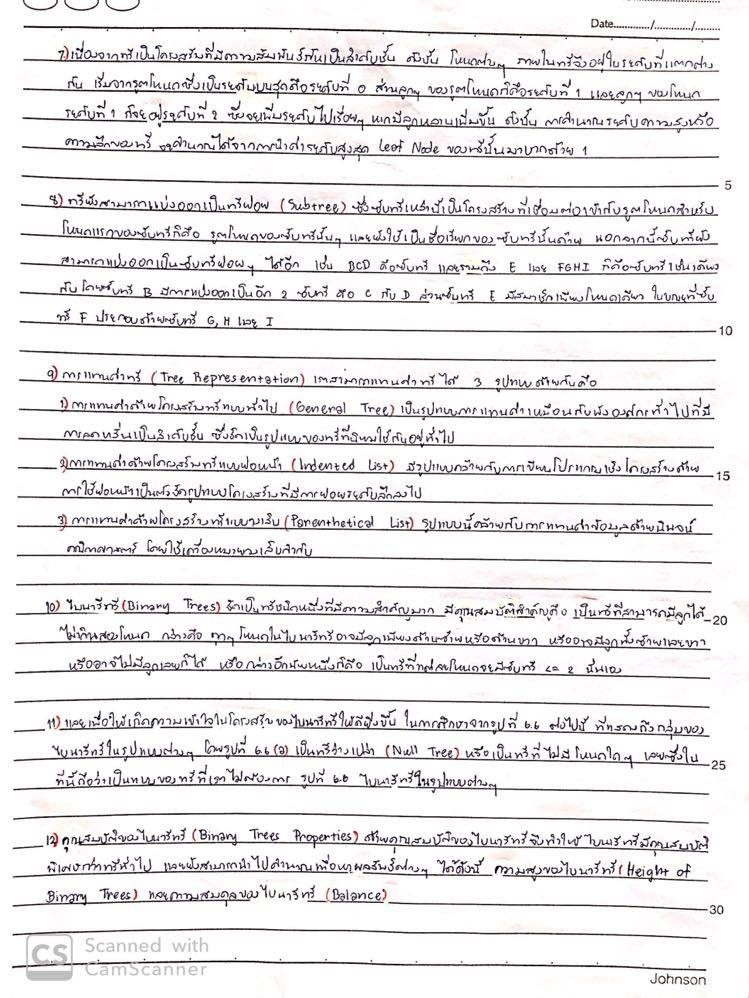 Date............/............/.........
7) เนื่องจากทรีเป็นโครงสร้างที่มีความสัมพันธ์กันเป็นลำดับชั้น ดังนั้น โหนดต่างๆ ภายในทรีจึงอยู่ในระดับที่แตกต่าง
กัน เริ่มจากรูตโหนดซึ่งเป็นระดับบนสุดคือระดับที่ 0 ส่วนลูกๆ ของรูตโหนดก็คือระดับที่ 1 และลูกๆ ของโหนด
ระดับที่ 1 ก็จะอยู่ระดับที่ 2 ซึ่งจะเพิ่มระดับไปเรื่อยๆ หากมีลูกหลานเพิ่มขึ้น ดังนั้น การคำนวณระดับความสูงหรือ
ความลึกของทรี จะคำนวณได้จากการนำค่าระดับสูงสุด Leaf Node ของทรีนั้นมาบวกด้วย 1
5
8) ทรียังสามารถแบ่งออกเป็นทรีย่อย (Subtree) ซึ่งซับทรีเหล่านี้เป็นโครงสร้างที่เชื่อมต่อเข้ากับรูตโหนดสำหรับ
โหนดแรกของซับทรีก็คือ รูตโหนดของซับทรีนั้นๆ และยังใช้เป็นชื่อเรียกของซับทรีนั้นด้วย นอกจากนี้ซับทรียัง
สามารถแบ่งออกเป็นซับทรีย่อยๆ ได้อีก เช่น BCD คือซับทรี และรวมถึง E และ FGHI ก็คือซับทรีเช่นเดียว
กับโดยซับทรี B มีการแบ่งออกเป็นอีก 2 ซับทรี คือ C กับ D ส่วนซับทรี E มีสมาชิกเพียงโหนดเดียว ในขณะที่ซับ
ทรี F ประกอบด้วยซับทรี G, H และ I
10
9) การแทนค่าทรี (Tree Representation) เราสามารถแทนค่าทรีได้ 3 รูปแบบด้วยกันคือ
1) การแทนค่าด้วยโครงสร้างทรีแบบทั่วไป (General Tree) เป็นรูปแบบการแทนค่าเหมือนกับผังองค์กรทั่วไปที่มี
การลดหลั่นเป็นลำดับชั้น ซึ่งจัดเป็นรูปแบบของทรีที่นิยมใช้กันอยู่ทั่วไป
2) การแทนค่าด้วยโครงสร้างทรีแบบย่อหน้า (Indented List) มีรูปแบบคล้ายกับการเขียนโปรแกรมเชิงโครงสร้างด้วย
15
การใช้ย่อหน้าเป็นตัวจัดรูปแบบโครงสร้างที่มีการย่อยระดับลึกลงไป
3) การแทนค่าด้วยโครงสร้างทรีแบบวงเล็บ (Parenthetical List) รูปแบบนี้คล้ายกับการแทนค่าข้อมูลด้วยนิพจน์
คณิตศาสตร์ โดยใช้เครื่องหมายวงเล็บกำกับ
10) ไบนารีทรี (Binary Trees) จัดเป็นทรีชนิดหนึ่งที่มีความสำคัญมาก มีคุณสมบัติสำคัญคือ เป็นทรีที่สามารถมีลูกได้
20
ไม่เกินสองโหนด กล่าวคือ ทุกๆ โหนดในไบนารีทรีอาจมีลูกเพียงด้านซ้ายหรือด้านขวา หรืออาจมีลูกทั้งซ้ายและขวา
หรืออาจไม่มีลูกเลยก็ได้ หรือกล่าวอีกนัยหนึ่งก็คือ เป็นทรีที่แต่ละโหนดจะมีซับทรี <= 2 นั่นเอง
11) และเพื่อให้เกิดความเข้าใจในโครงสร้างของไบนารีทรีให้ดียิ่งขึ้น ในการศึกษาจากรูปที่ 6.6 ต่อไปนี้ ที่แสดงถึงกลุ่มของ
ไบนารีทรีในรูปแบบต่างๆ โดยรูปที่ 6.6 (a) เป็นทรีว่างเปล่า (Null Tree) หรือเป็นทรีที่ไม่มีโหนดใดๆ เลยซึ่งใน
25
ที่นี้ถือว่าเป็นแบบของทรีที่เราไม่ต้องการ รูปที่ 6.6 ไบนารีทรีในรูปแบบต่างๆ
12) คุณสมบัติของไบนารีทรี (Binary Trees Properties) ด้วยคุณสมบัติของไบนารีทรีจึงทำให้ ไบนารีทรีมีคุณสมบัติ
พิเศษกว่าทรีทั่วไป และยังสามารถนำไปคำนวณเพื่อหาผลลัพธ์ต่างๆ ได้ดังนี้ ความสูงของไบนารีทรี (Height of
Binary Trees) และความสมดุลของไบนารีทรี (Balance)
30
CS Scanned with
CamScanner
Johnson